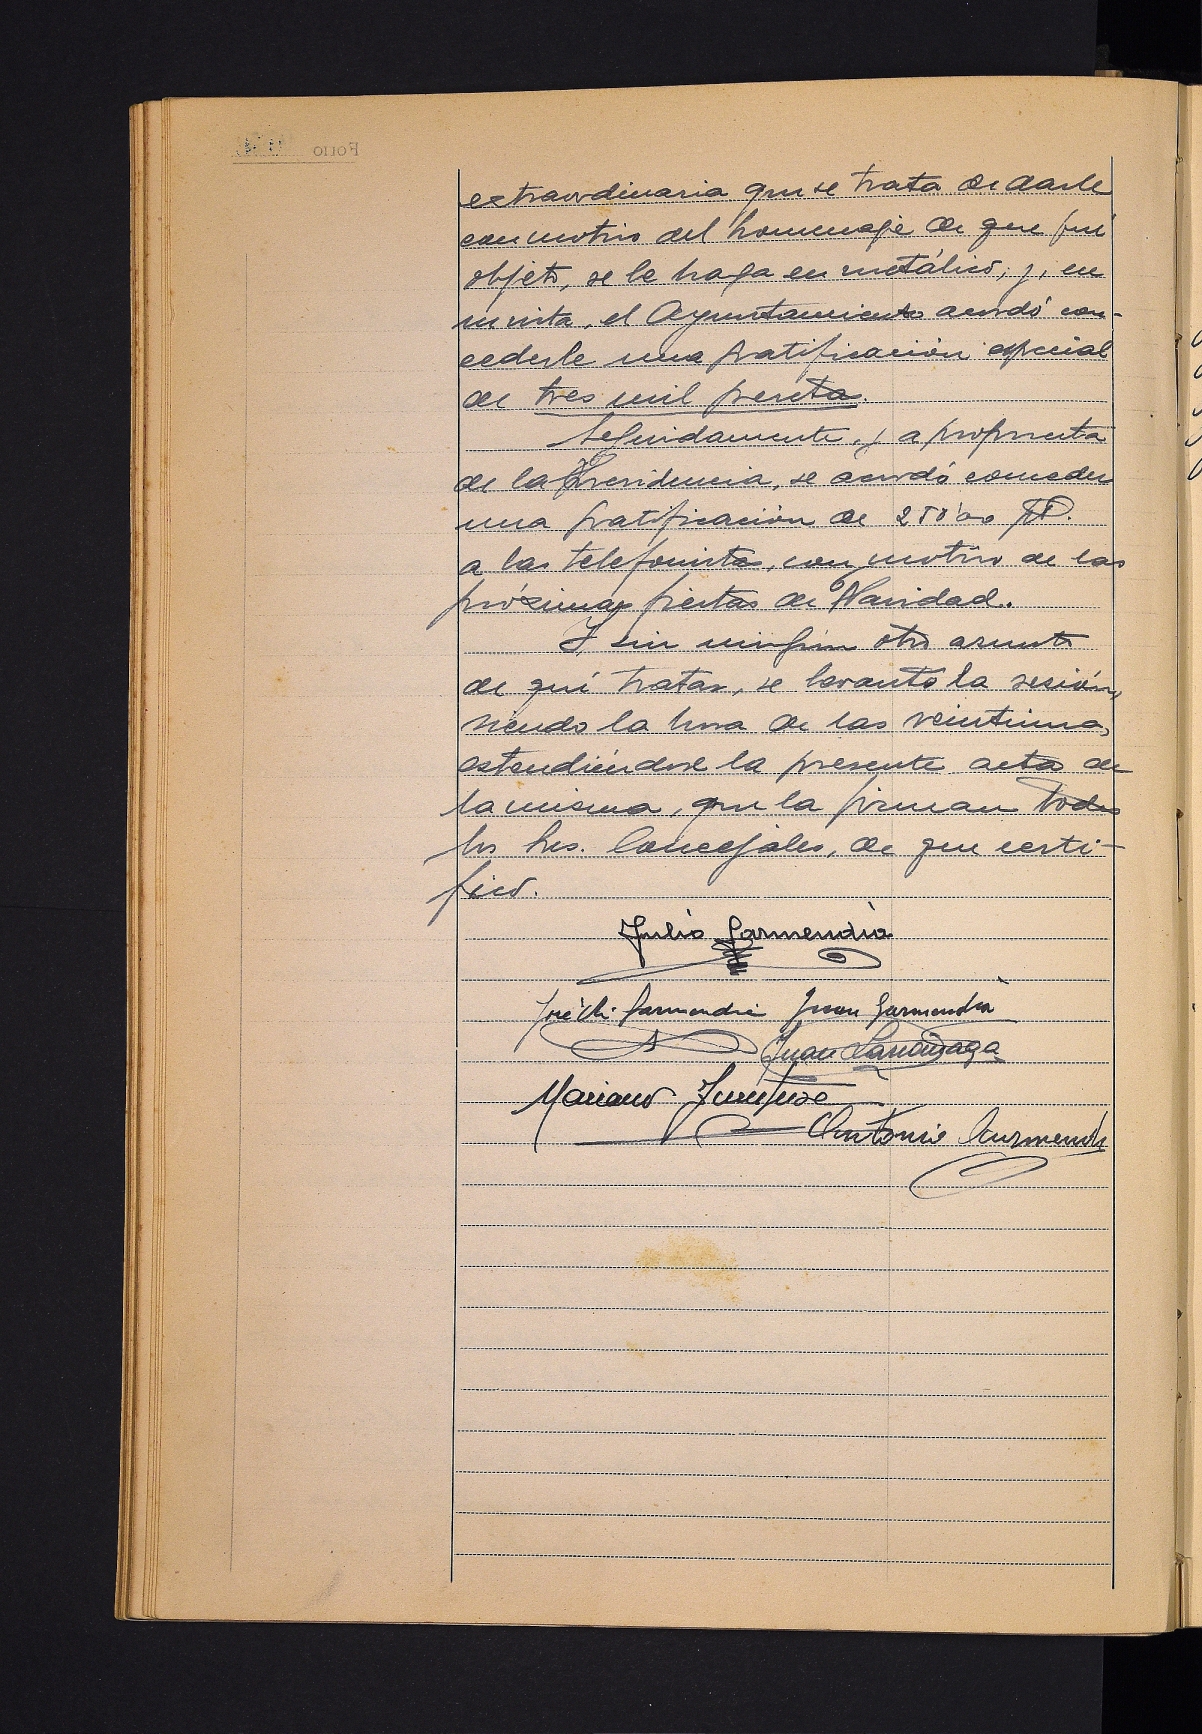 extraordinaria que se trata de darle
con motivo del homenaje de que fué
objeto, se le haga en metálico; y, en
su vista, el Ayuntamiento acordó con-
cederle una gratificación especial
de tres mil pesetas.
Seguidamente, y a propuesta
de la Presidencia, se acordó conceder
una gratificación de 250'00
a las telefonistas, con motivo de las
próximas fiestas de Navidad.
Y sin ningún otro asunto
de qué tratar, se levantó la sesión,
siendo la hora de las veintiuna,
extendiéndose la presente acta de
la misma, que la firman todos
los Sres. Concejales, de que certi-
fico.
Julio Garmendia
José Mi. Garmendia Juan Garmendia
Juan Larrañaga
Mariano
Antonio
FOLIO